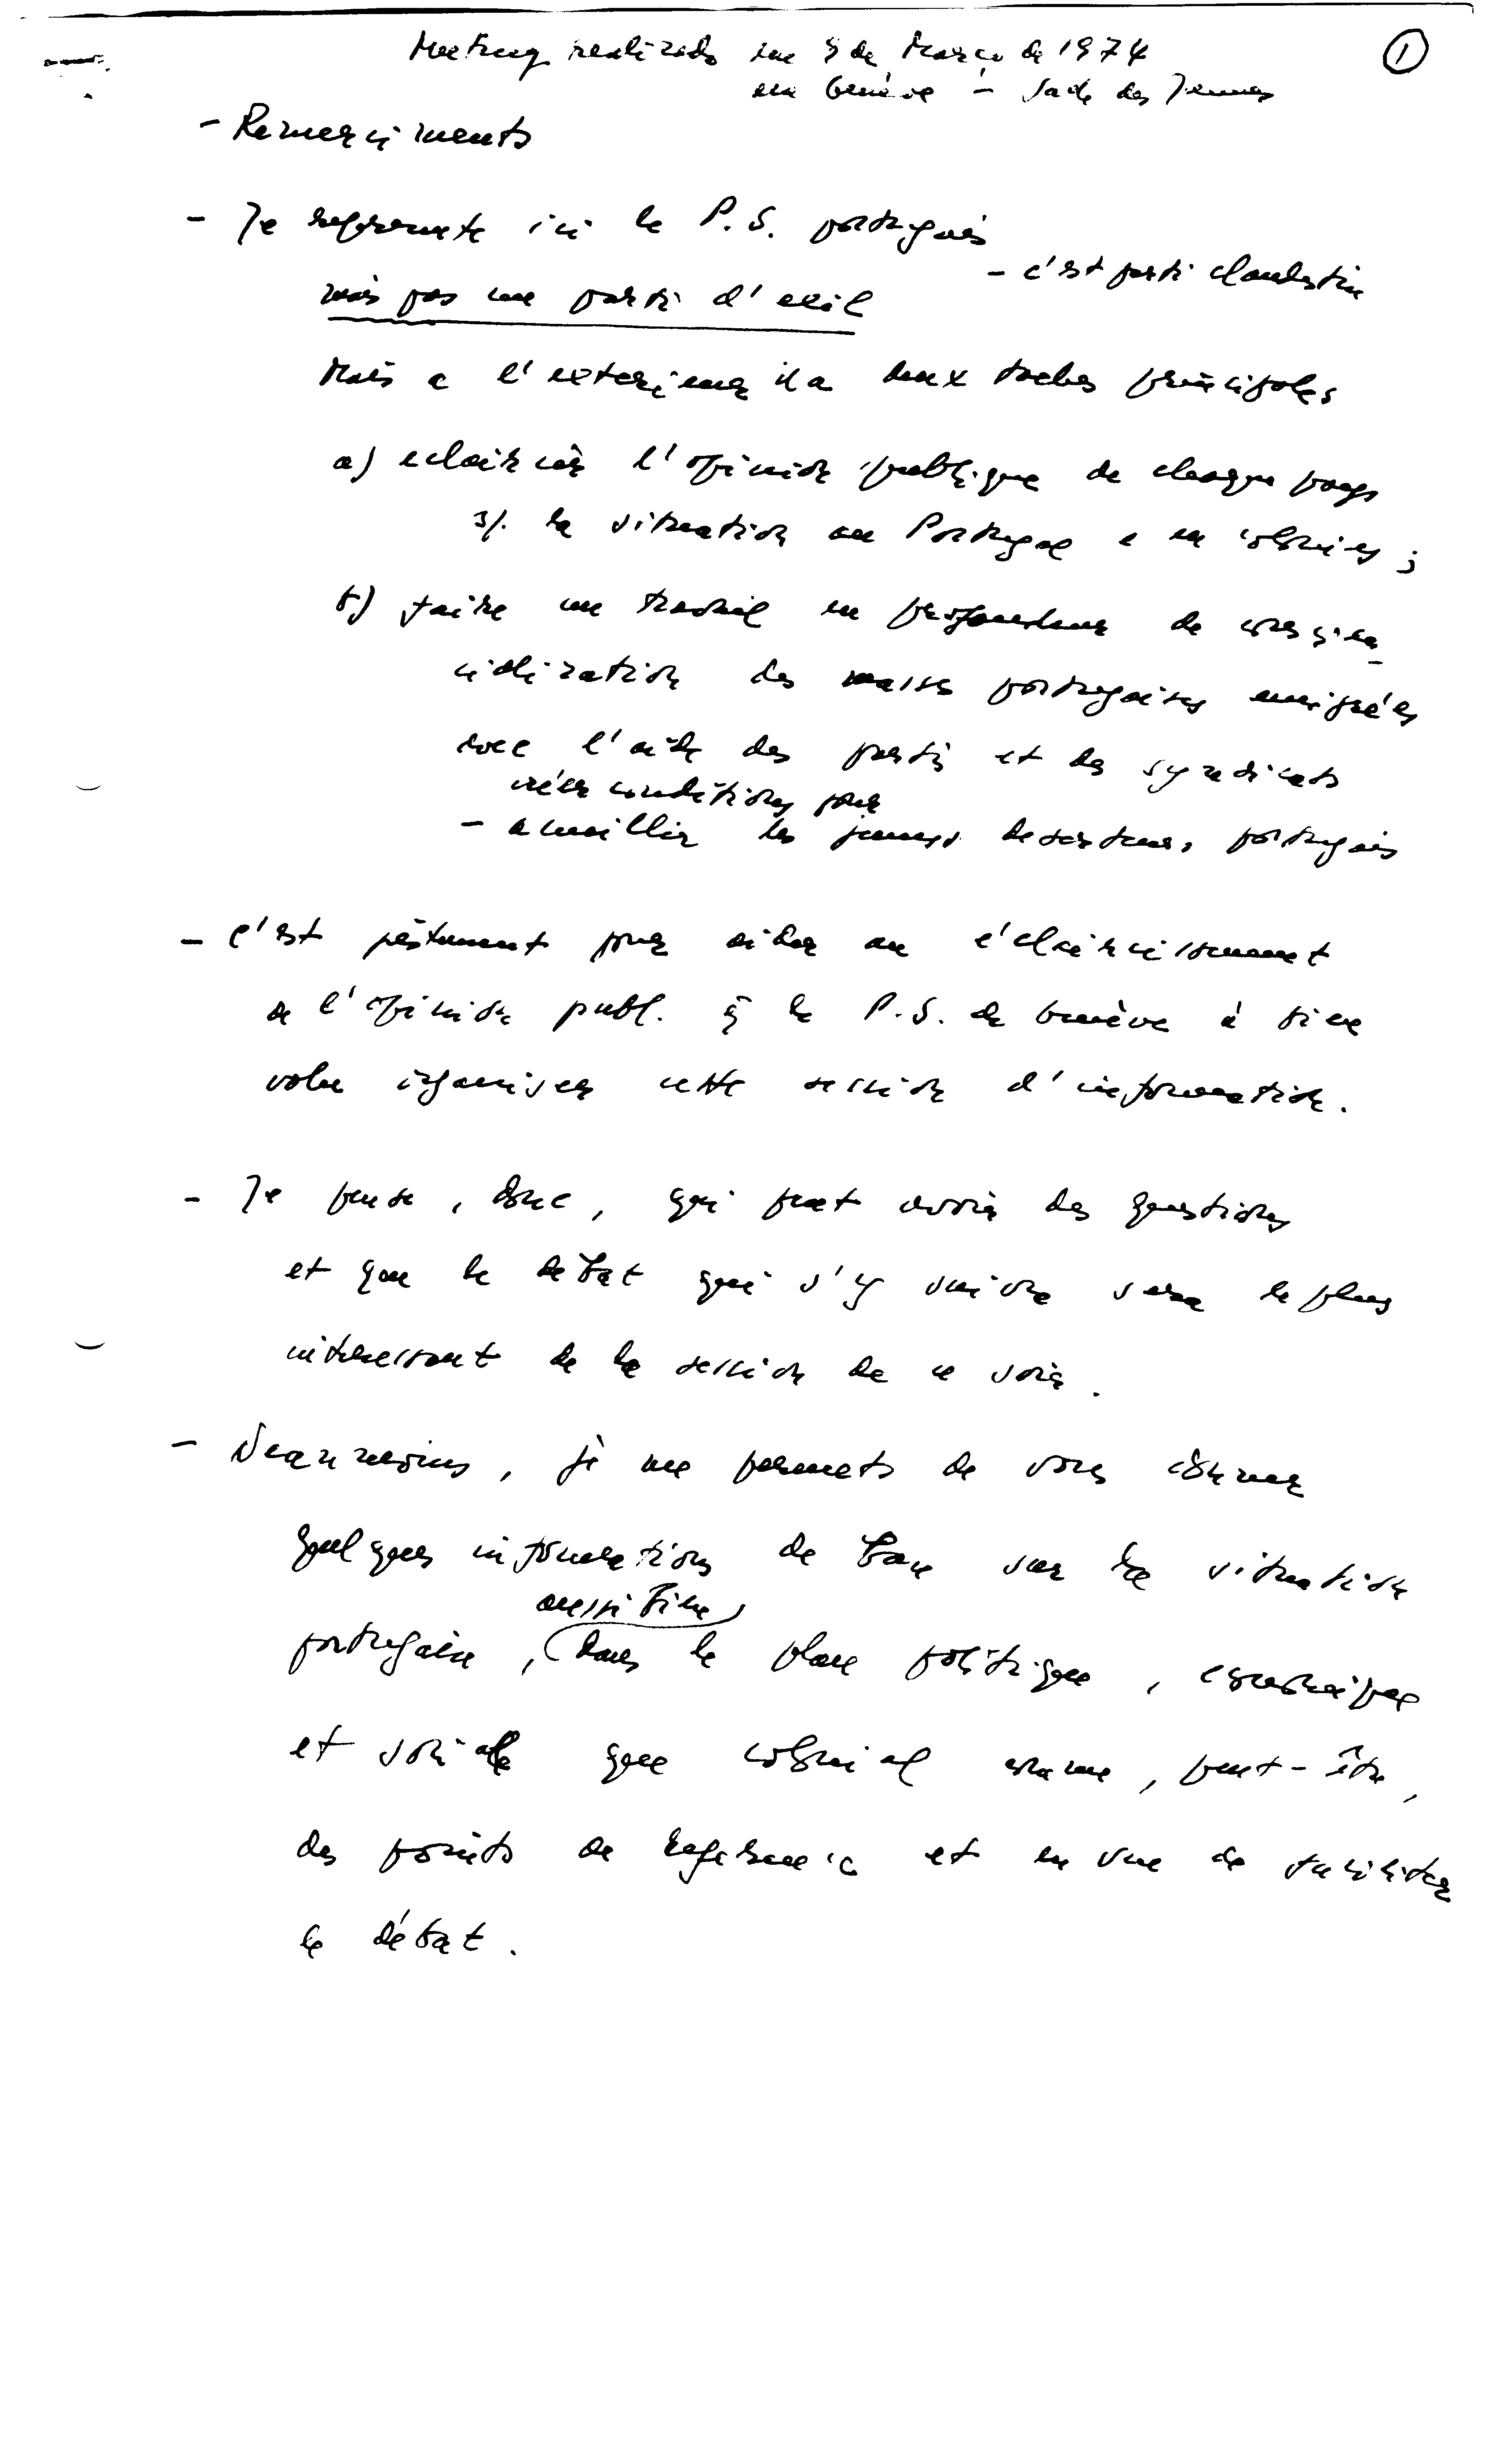 Meeting realizado em 9 de Março de 1974
em Genève - Salle des
①
- Remerciments
- Je represente ici le P. S. portugais
- c'est parti clandestin
mais pas un parti d'exil
Mais a l'exterieur il a deux taches principales
a) eclaircir l'opinion publique de chaque pays
s/. la situation au Portugal e en colonies ;
b) faire un travail en profondeur de conscien_
cialization des masses portugaises emigrées
avec l'aide des partis et des syndicats
créer conditions pour
- acueillir les jeunes deserteurs portugais
- C'est justement pour aider au éclaircissement
de l'opinion publ. q̃ le P.S. de Genève à bien
volu organiser cette session d'information.
- Je pense, donc, qui peut avoir des questions
et que le débat qui s'y suivra sera le plus
interessant de la session de ce soir.
- Neanmoins, je me permets de vous donner
quelques informations de base sur la situation
aussi bien
portugaise, (dans le plan politique, economique
et sociale que colonial comme, peut-être,
des points de reference et en vue de faciliter
le débat.